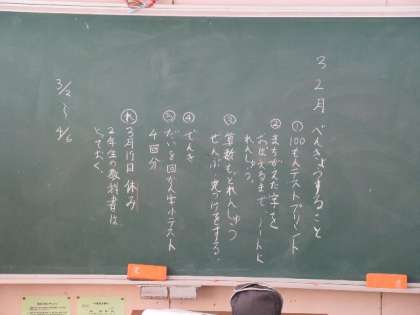 3 2月 べんきょうすること
① 100もんテストプリント
② まちがえた字を
おぼえるまで ノートに
れんしゅう。
③ 算数もどれんしゅう
ぜんぶ 丸つけをする。
④ でんき
⑤ だい2回かん字小テスト
4回分
3月17日 休み
2年生の教科書は
とっておく。
3/2
〜
4/6